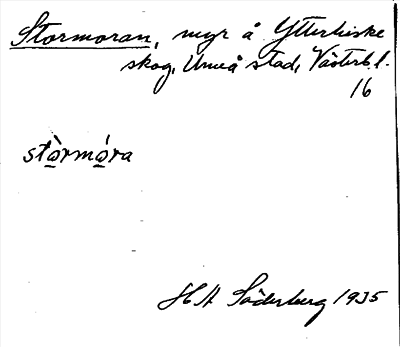 Stormoran, myr å Ytterhiske
skog, Umeå stad, Västerb. l.
16
stò̲rmó̲ra
H A Söderberg 1935